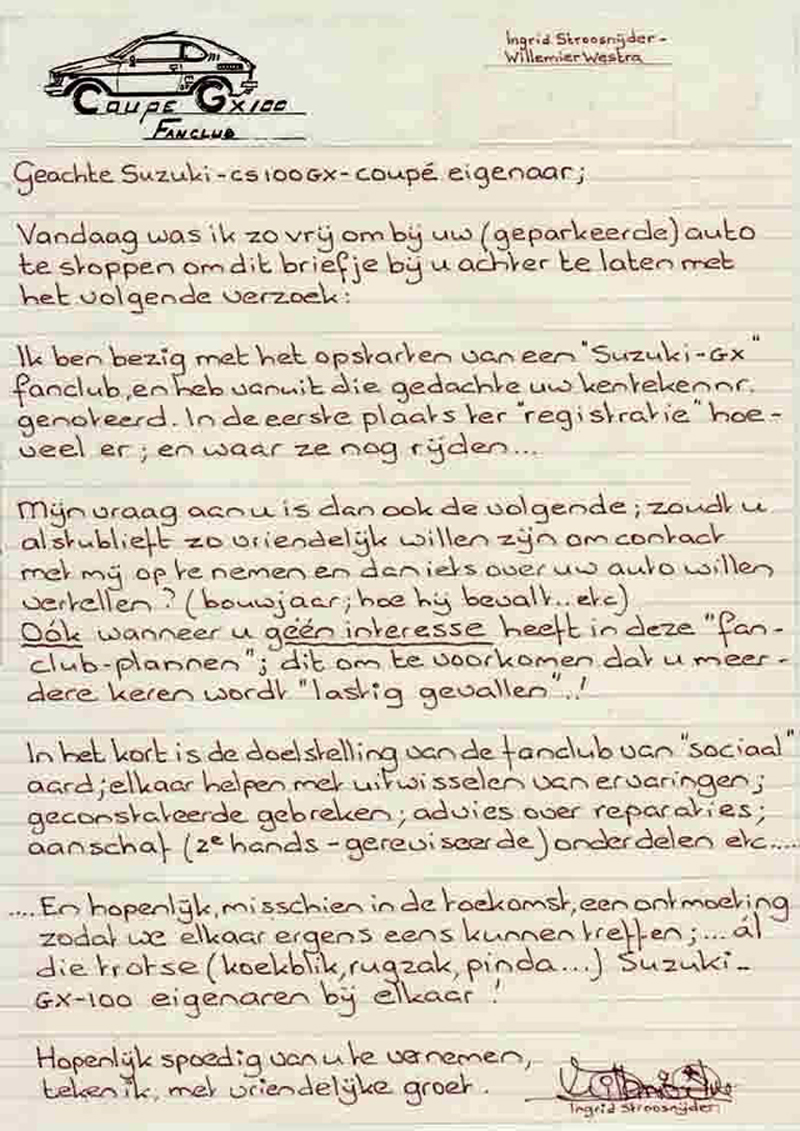 Ingrid Stroosnijder-
Willemier Westra
Coupe Gx100
Fanclub
Geachte Suzuki-CS100GX-coupé eigenaar;
Vandaag was ik zo vrij om bij uw (geparkeerde) auto
te stoppen om dit briefje bij u achter te laten met
het volgende verzoek:
Ik ben bezig met het opstarten van een "Suzuki-GX"
fanclub, en heb vanuit die gedachte uw kentekennr.
genoteerd. In de eerste plaats ter "registratie" hoe-
veel er; en waar ze nog rijden...
Mijn vraag aan u is dan ook de volgende; zoudt u
alstublieft zo vriendelijk willen zijn om contact
met mij op te nemen en dan iets over uw auto willen
vertellen? (bouwjaar; hoe hij bevalt.. etc)
Oók wanneer u géén interesse heeft in deze "fan-
club-plannen"; dit om te voorkomen dat u meer-
dere keren wordt "lastig gevallen"..!
In het kort is de doelstelling van de fanclub van "sociaal"
aard; elkaar helpen met uitwisselen van ervaringen;
geconstateerde gebreken; advies over reparaties;
aanschaf (2e hands - gereviseerde) onderdelen etc....
....En hopenlijk, misschien in de toekomst, een ontmoeting
zodat we elkaar ergens eens kunnen treffen;... ál
die trotse (koekblik, rugzak, pinda...) Suzuki-
GX-100 eigenaren bij elkaar!
Hopenlijk spoedig van u te vernemen,
teken ik, met vriendelijke groet.
Ingrid Stroosnijder